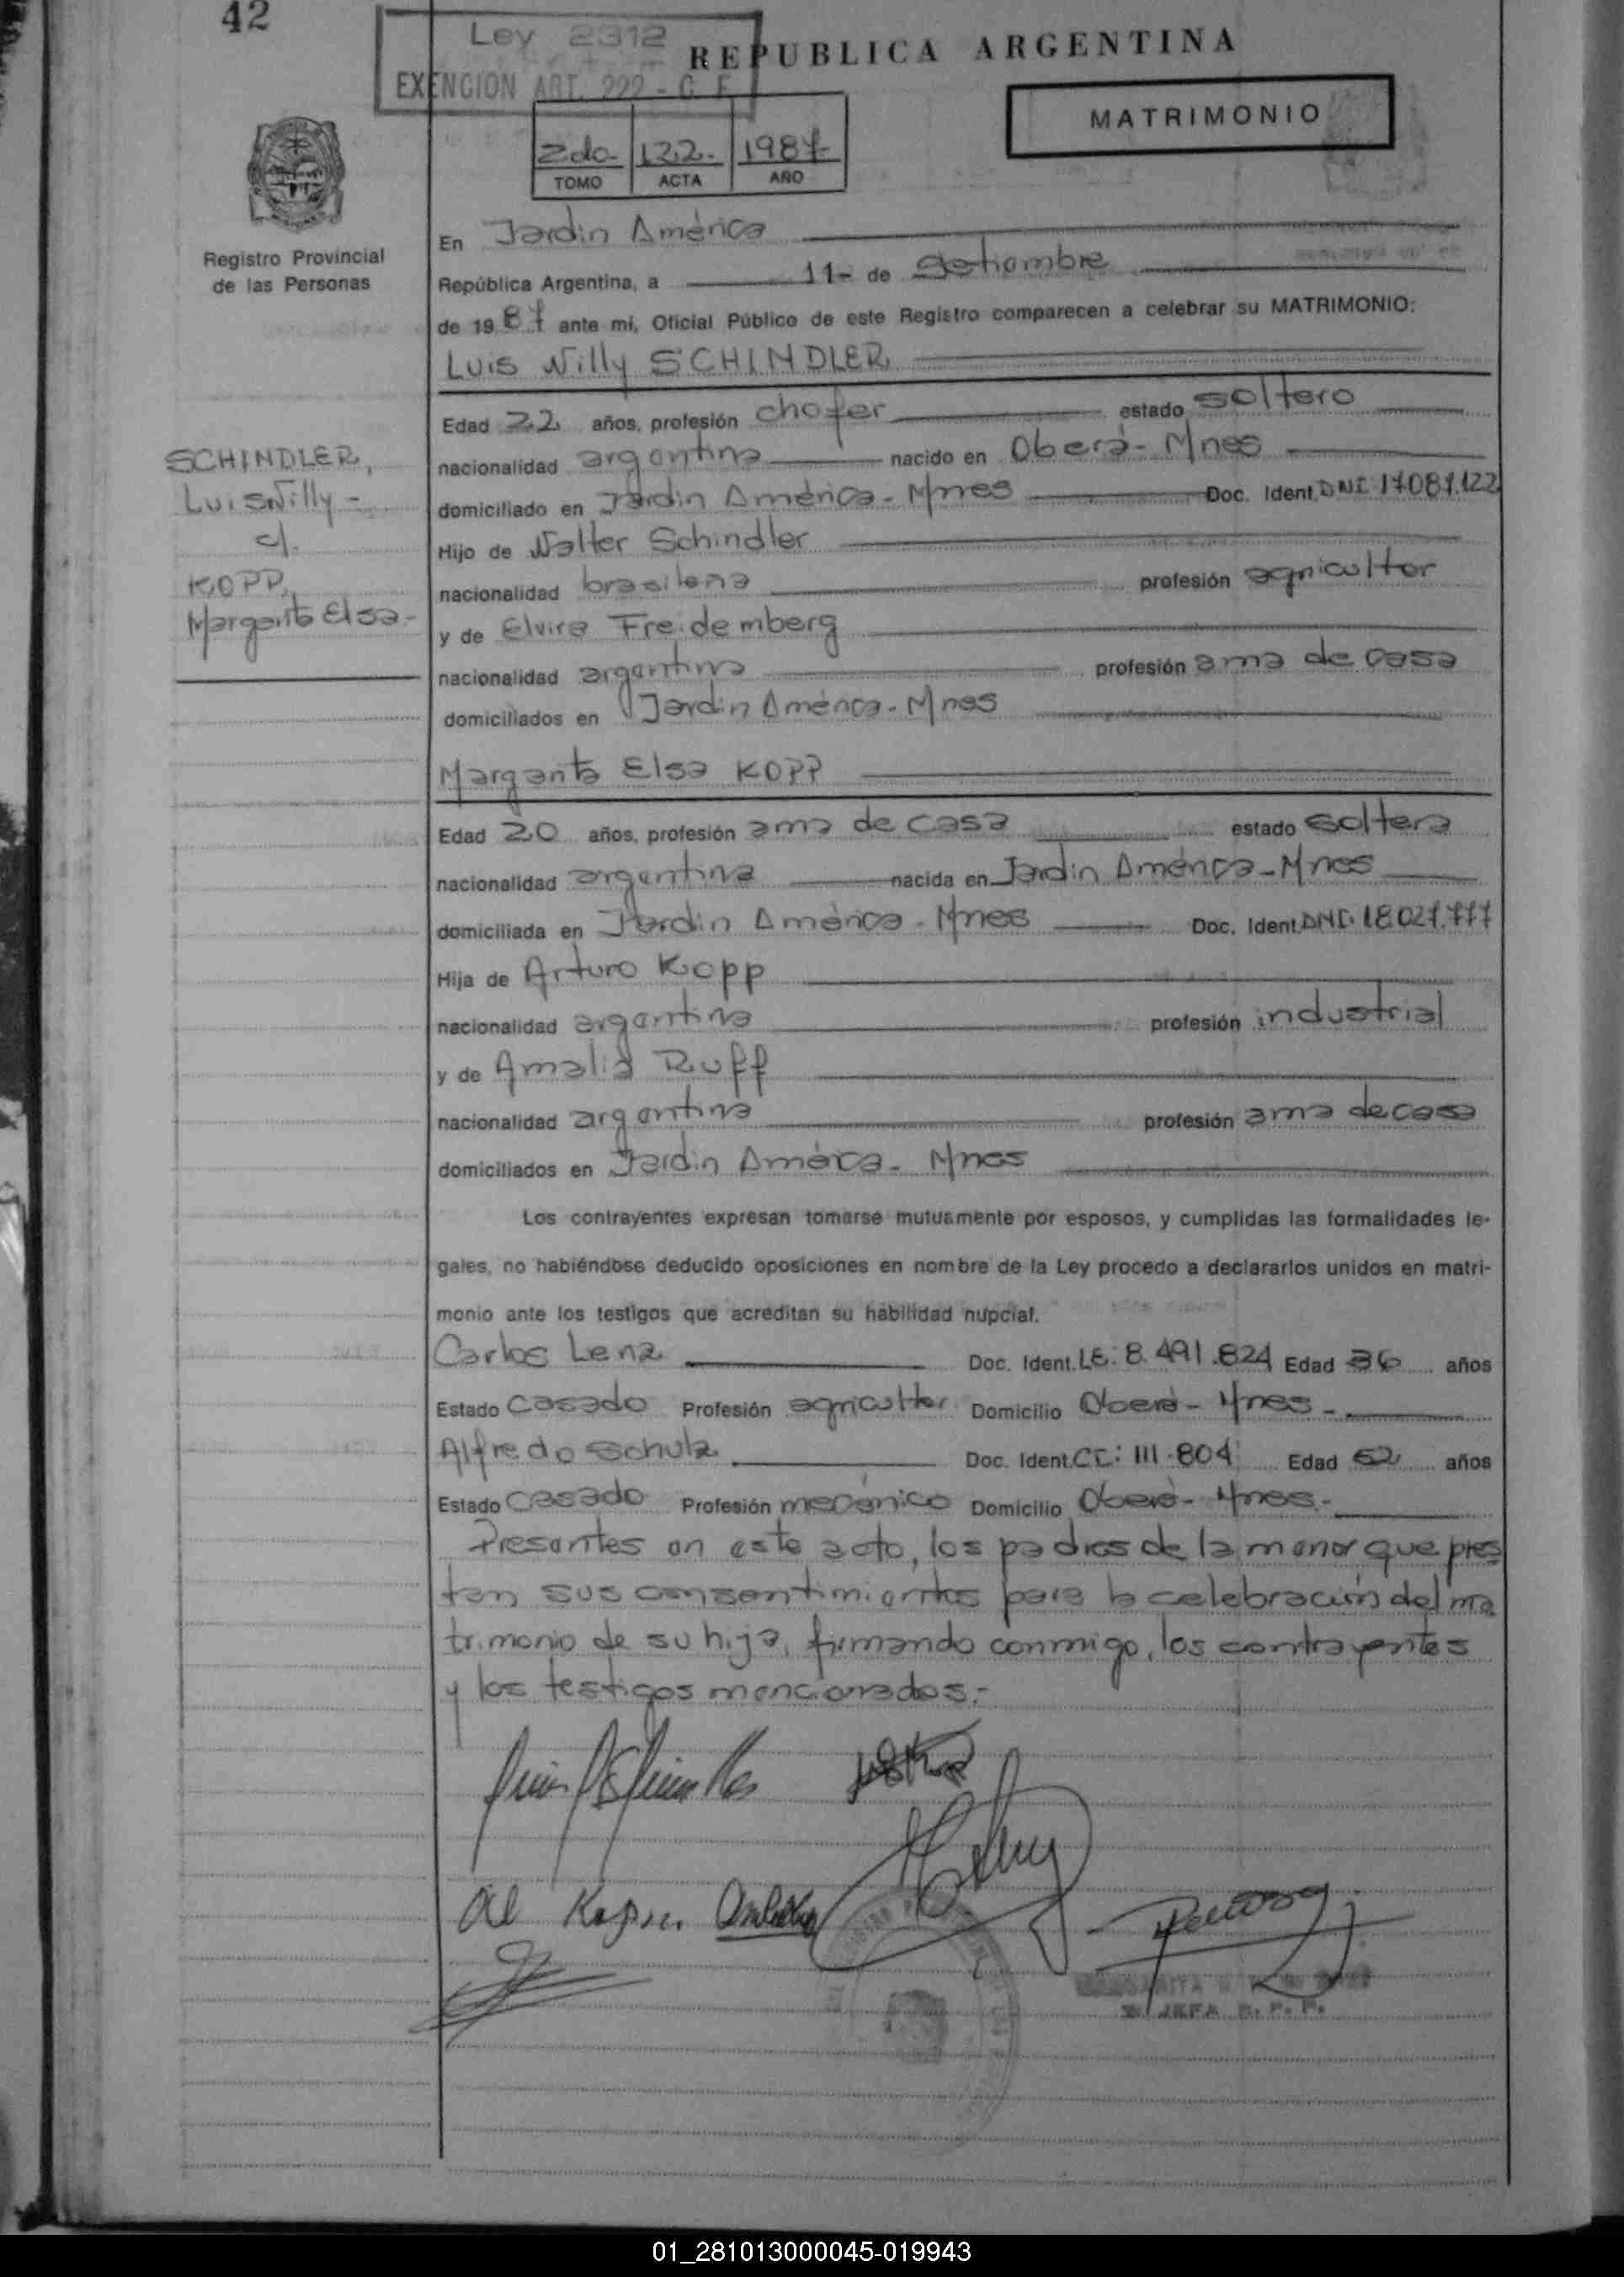 42
Ley 2312
EXENCION ART. 222 - C. F.
REPUBLICA ARGENTINA
MATRIMONIO
2do. 122. 1987
TOMO ACTA AÑO
Registro Provincial
de las Personas
En Jardin América
República Argentina, a 11- de Setiembre
de 1987 ante mi, Oficial Público de este Registro comparecen a celebrar su MATRIMONIO:
Luis Willy SCHINDLER
SCHINDLER,
Luis Willy -
c/.
KOPP,
Margarita Elsa.-
Edad 22 años, profesión chofer estado soltero
nacionalidad argentina nacido en Oberá - Mnes
domiciliado en Jardin América - Mnes Doc. Ident. DNI 17.087.122
Hijo de Walter Schindler
nacionalidad brasileña profesión agricultor
y de Elvira Freidemberg
nacionalidad argentina profesión ama de casa
domiciliados en Jardin América - Mnes
Margarita Elsa KOPP
Edad 20 años, profesión ama de casa estado soltera
nacionalidad argentina nacida en Jardin América - Mnes
domiciliada en Jardin América - Mnes Doc. Ident. DNI. 18.027.777
Hija de Arturo Kopp
nacionalidad argentina profesión industrial
y de Amalia Ruff
nacionalidad argentina profesión ama de casa
domiciliados en Jardin América - Mnes
Los contrayentes expresan tomarse mutuamente por esposos, y cumplidas las formalidades le-
gales, no habiéndose deducido oposiciones en nombre de la Ley procedo a declararlos unidos en matri-
monio ante los testigos que acreditan su habilidad nupcial.
Carlos Lenz Doc. Ident. LE: 8.491.824 Edad 36 años
Estado Casado Profesión agricultor Domicilio Oberá - Mnes -
Alfredo Schulz Doc. Ident. CI: 111.804 Edad 52 años
Estado Casado Profesión mecánico Domicilio Oberá - Mnes.-
Presentes en este acto, los padres de la menor que pres
tan sus consentimientos para la celebración del ma
trimonio de su hija, firmando conmigo, los contrayentes
y los testigos mencionados.-
JEFA R. P. P.
01_281013000045-019943